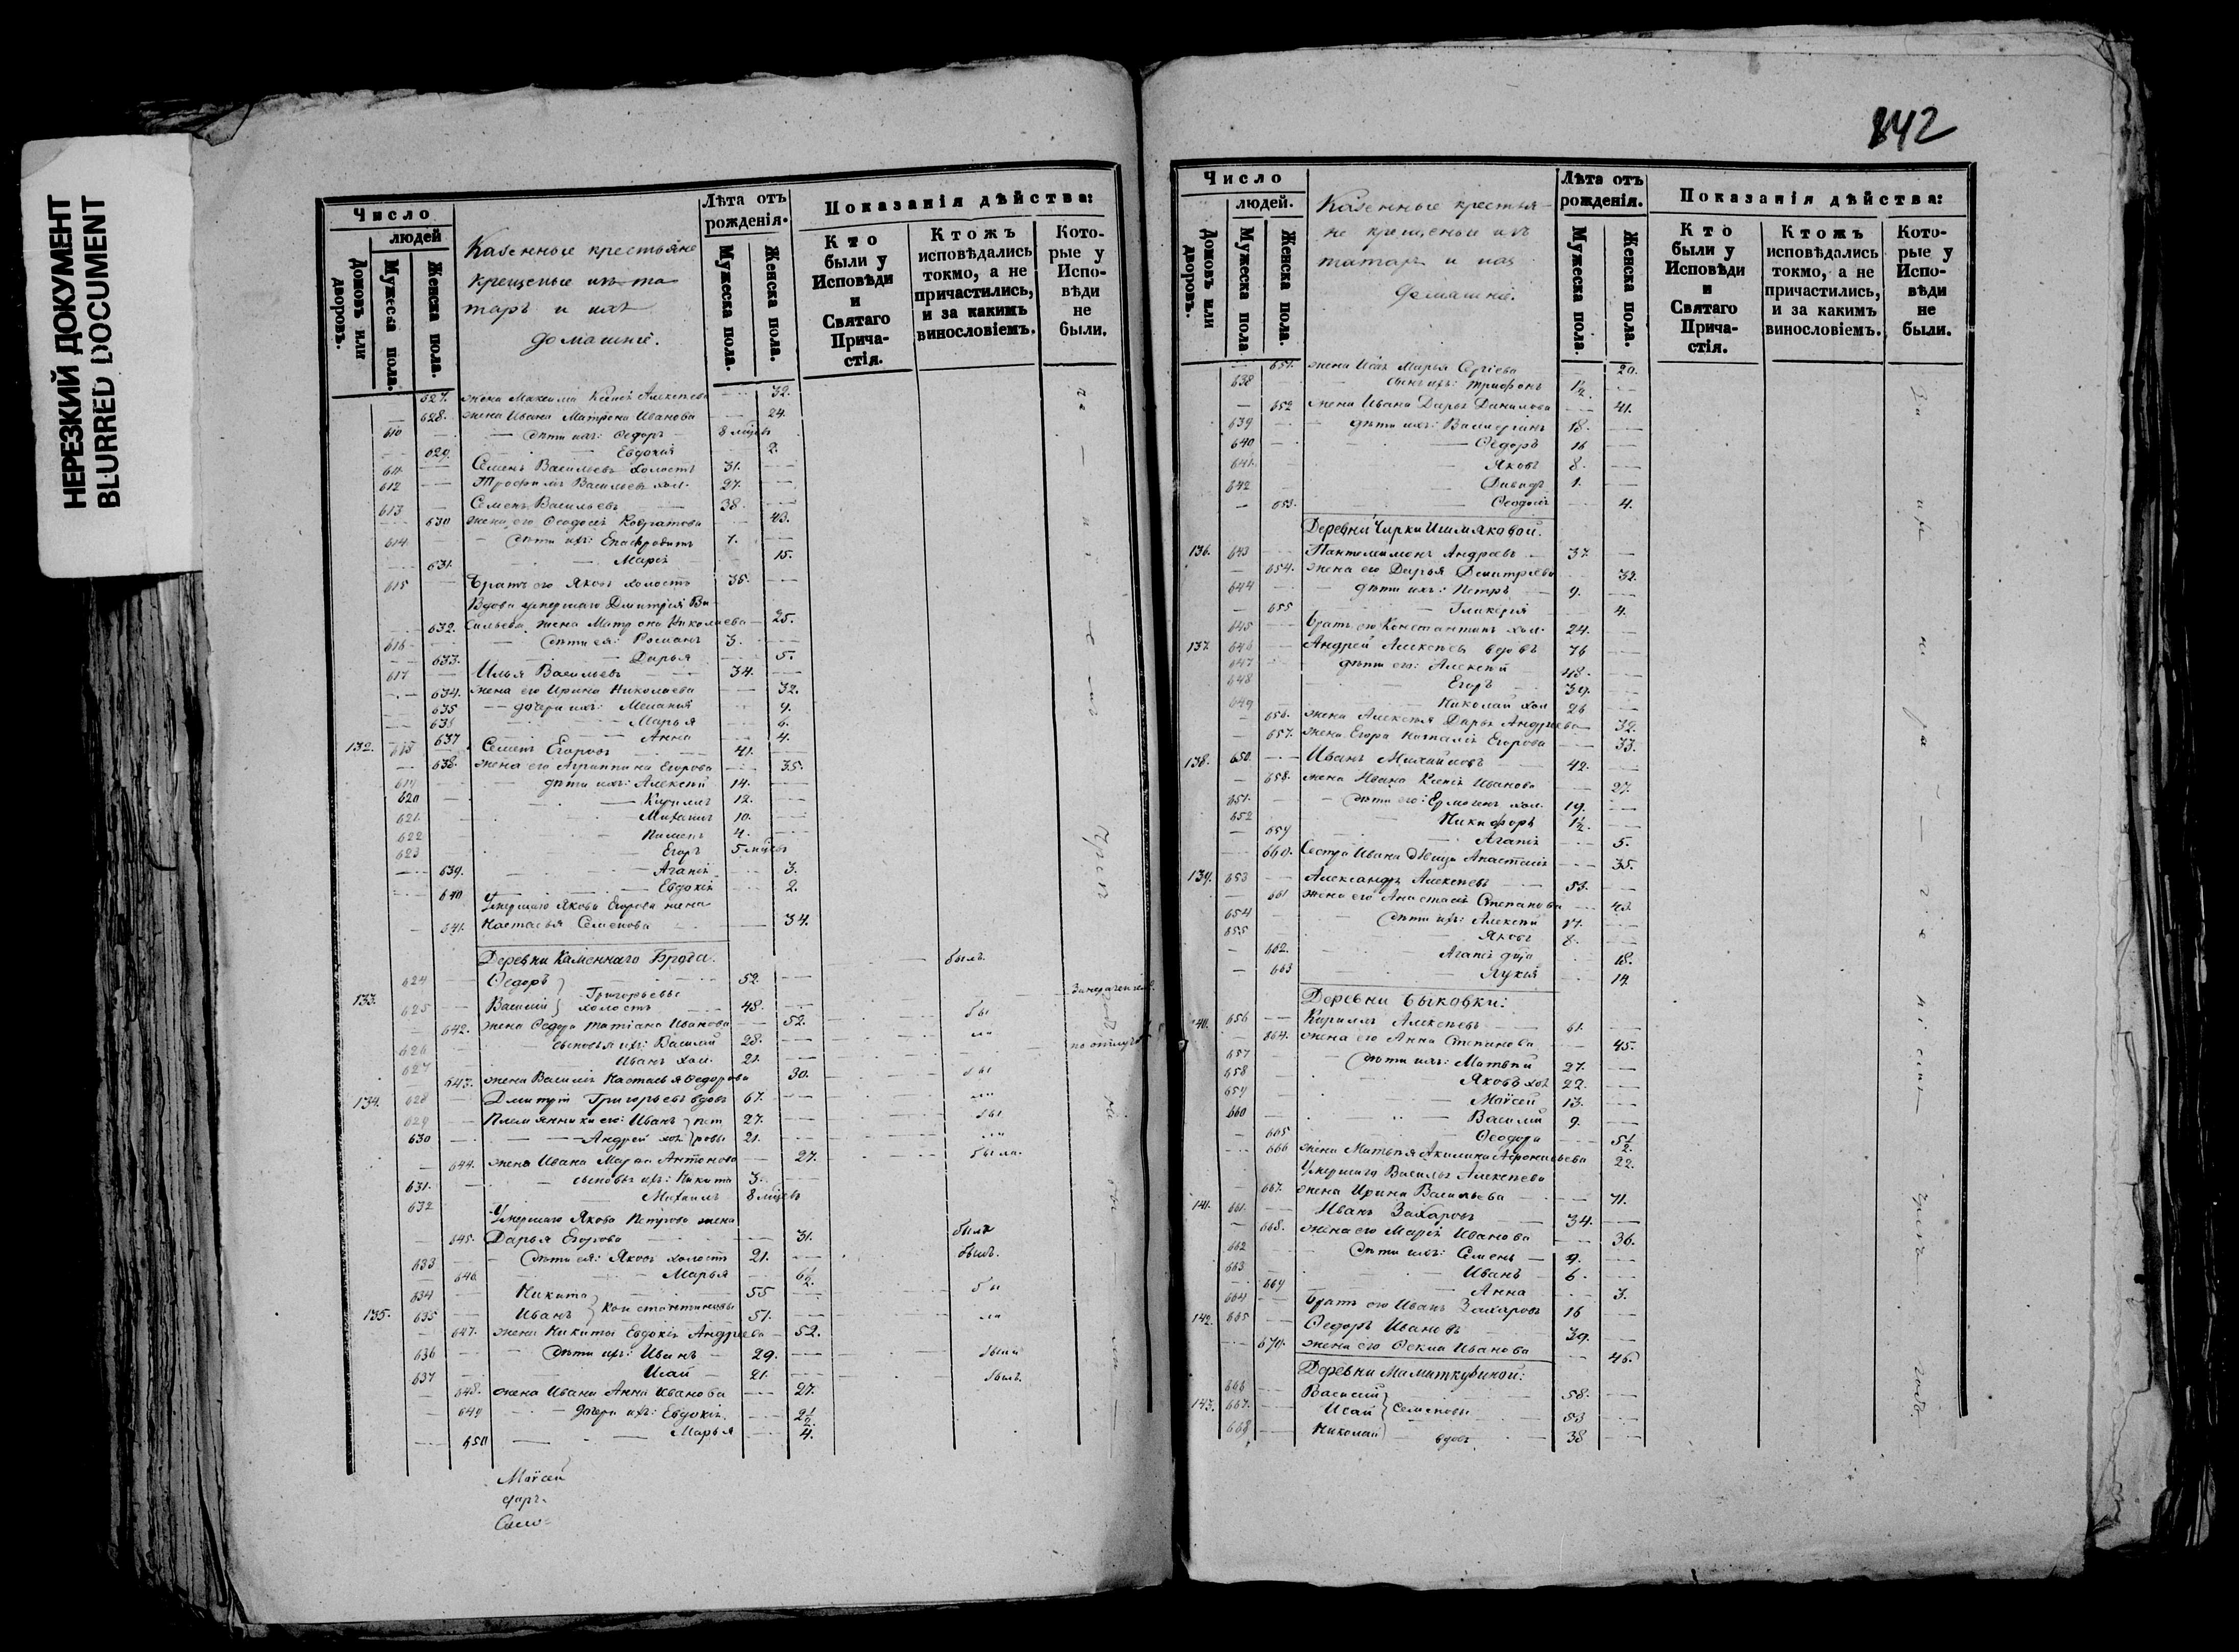 НЕРЕЗКИЙ ДОКУМЕНТ
BLURRED DOCUMENT
842
Число
людей
Домовъ или дворовъ.
Мужеска пола.
Женска пола.
Казенные крестьяне
крещеные изъ та
таръ и ихъ
домашніе.
Лѣта отъ рожденія.
Мужеска пола.
Женска пола.
Показанія дѣйства:
Кто были у Исповѣди и Святаго Причастія.
Ктожъ исповѣдались токмо, а не причастились, и за какимъ винословіемъ.
Которые у Исповѣди не были.
627. жена Максима Ксенія Алексѣева 32.
628. жена Ивана Матрена Иванова 24.
610 дѣти ихъ: Ѳедоръ 8 мѣцевъ
629. Евдокія 2.
611 Семенъ Васильевъ холостъ 31.
612 Трофимъ Васильевъ хол. 27.
613 Семенъ Васильевъ 38.
630 жена его Ѳеодосія Кодратова 43.
614 дѣти ихъ: Епафродитъ 7.
631. Марія 15.
615 Братъ его Яковъ холостъ 35.
Вдова умершаго Дмитрія Ва
632. сильева жена Матрона Николаева 25.
616 дѣти ея: Романъ 3.
633. Дарья 5.
617 Илья Васильевъ 34.
634. жена его Ирина Николаева 32.
635 дочери ихъ: Меланія 9.
636 Марья 6.
637 Анна 4.
132. 618 Семенъ Егоровъ 41.
638. жена его Агриппина Егорова 35.
619 дѣти ихъ: Алексѣй 14.
620 Кириллъ 12.
621. Михаилъ 10.
622 Пименъ 4.
623 Егоръ 5 мѣцевъ
639. Агапія 3.
640 Евдокія 2.
Умершаго Якова Егорова жена
641. Настасья Семенова 34.
Деревни Каменнаго Брода.
133. 624 Ѳедоръ Григорьевы 52. былъ.
625 Василій холостъ 48.
642. жена Ѳедора Татіана Иванова 52. бы
626 сыновья ихъ: Василій 28. ли
627 Иванъ хол. 21.
643. жена Василія Настасья Ѳедорова 30. бы
134. 628 Дмитрій Григорьевъ вдовъ 67. ли
629 Племянники его: Иванъ Пет 27. бы
630 Андрей хол. ровы 21. ли
644. жена Ивана Марья Антонова 27. была.
631. сыновья ихъ: Никита 3.
632 Михаилъ 8 мѣцевъ
Умершаго Якова Петрова жена
645. Дарья Егорова 31. была
633 дѣти ея: Яковъ холостъ 21. былъ.
646 Марья 6½.
634 Никита 55 бы
135. 635 Иванъ Константиновы 51. ли
647. жена Никиты Евдокія Андреева 52.
636 дѣти ихъ: Иванъ 29. были
637 Исай 21. былъ.
648. жена Ивана Анна Иванова 27.
649 дочери ихъ: Евдокія 2½
650 Марья 4.
Моѵсей
Число
людей.
Домовъ или дворовъ.
Мужеска пола
Женска пола.
Казенные крестья-
не крещеные изъ
татаръ и ихъ
домашніе.
Лѣта отъ рожденія.
Мужеска пола.
Женска пола.
Показанія дѣйства:
Кто были у Исповѣди и Святаго Причастія.
Ктожъ исповѣдались токмо, а не причастились, и за какимъ винословіемъ.
Которые у Исповѣди не были.
651. жена Исая Марья Сергіева 20.
638 сынъ ихъ: Трифонъ 1½.
652 жена Ивана Дарья Данилова 41.
639 дѣти ихъ: Валеріанъ 18.
640 Ѳедоръ 16
641. Яковъ 8.
642 Давидъ 1.
653. Ѳеодосія 4.
Деревни Чирки Ишмяковой.
136. 643 Пантелимонъ Андреевъ 37.
654. жена его Дарья Дмитріева 32.
644 дѣти ихъ: Петръ 9.
655 Гликерія 4.
645 Братъ его Константинъ хол. 24.
137 646 Андрей Алексѣевъ вдовъ 76
647 дѣти его: Алексѣй 48.
648 Егоръ 39.
649 Николай хол 26
656. жена Алексѣя Дарья Андреева 32.
657. жена Егора Наталія Егорова 33.
138. 650. Иванъ Михайловъ 42.
658. жена Ивана Ксенія Иванова 27.
651. дѣти его: Ермогенъ хол. 19.
652 Никифоръ 1½.
659 Агапія 5.
660. Сестра Ивана дѣвица Анастасія 35.
139. 653 Александръ Алексѣевъ 53.
661 жена его Анастасія Степанова 43.
654 дѣти ихъ: Алексѣй 17.
655 Яковъ 8.
662. Агапія дѣца 18.
663 Лукія 14
Деревни Быковки:
140. 656 Кириллъ Алексѣевъ 61.
664. жена его Анна Степанова 45.
657 дѣти ихъ: Матвѣй 27.
658 Яковъ хол 22.
659 Моѵсей 13.
660 Василій 9.
665 Ѳеодора 5½.
666 жена Матвѣя Акилина Аѳонасьева 22.
Умершаго Василья Алексѣева
667. жена Ирина Васильева 71.
141. 661. Иванъ Захаровъ 34.
668. жена его Марія Иванова 36.
662 дѣти ихъ: Семенъ 9.
663 Иванъ 6.
669 Анна 3.
664 Братъ его Иванъ Захаровъ 16
142. 665 Ѳедоръ Ивановъ 39.
670. жена его Ѳекла Иванова 46.
Деревни Маматкозиной:
666 Василій 58.
143. 667. Исай Семеновы 53
668 Николай вдовъ 38